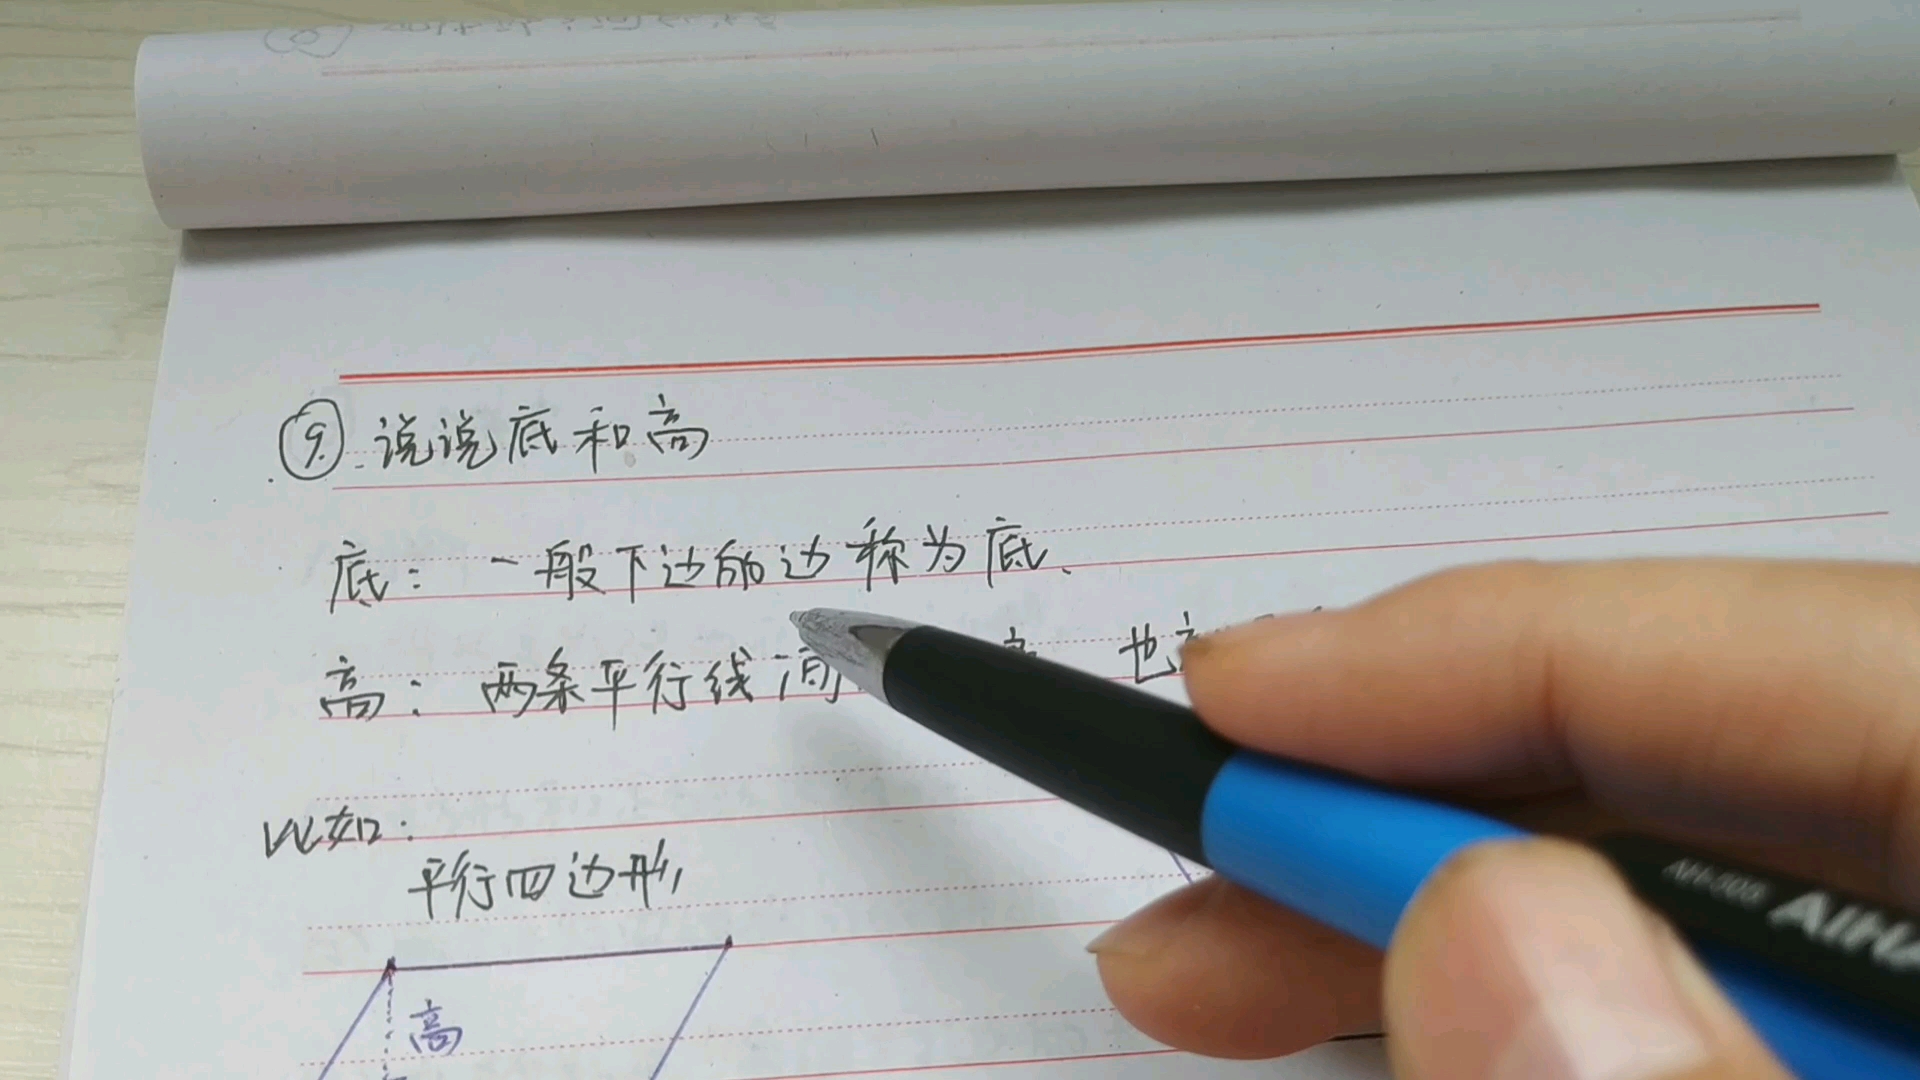 ⑨.说说底和高
底：一般下边的边称为底.
高：两条平行线间 也
比如：
平行四边形
高